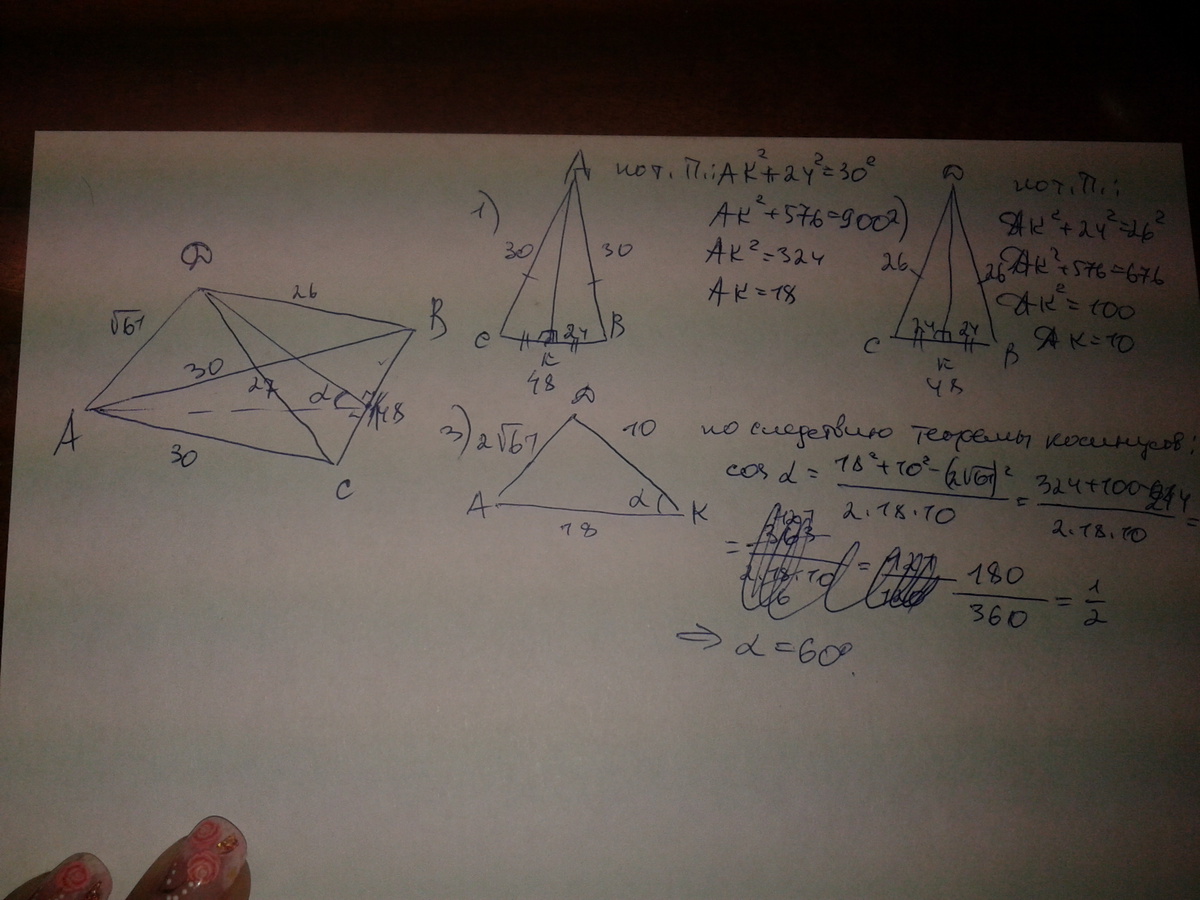 D
√61
26
B
30
27
α
48
A
30
C
1)
A
30
30
C
24
B
K
48
по т. П.: AK²+24²=30²
AK²+576=900
AK²=324
AK=18
2)
D
26
26
C
24
24
B
K
48
по т. П.:
DK²+24²=26²
DK²+576=676
DK²=100
DK=10
3)
D
2√61
10
A
α
K
18
по следствию теоремы косинусов:
cos α = (18²+10²-(2√61)²)/(2·18·10) = (324+100-244)/(2·18·10) =
= 180/360 = 1/2
⇒ α=60°.